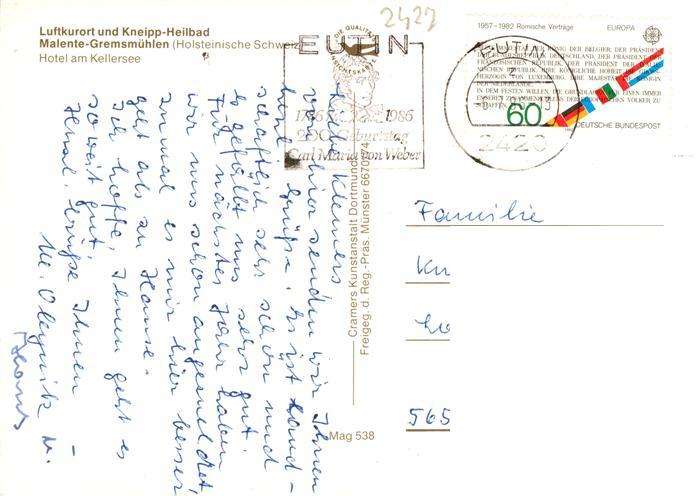 Luftkurort und Kneipp-Heilbad
Malente-Gremsmühlen (Holsteinische Schweiz)
Hotel am Kellersee
2427
EUTIN
1786 1986
200. Geburtstag
Carl Maria von Weber
EUTIN
2420
1957-1982 Römische Verträge EUROPA
60
DEUTSCHE BUNDESPOST
von hier senden wir Ihnen
Grüße. Es ist land-
schaftlich sehr schön und
es gefällt uns sehr gut.
Für nächstes Jahr haben
wir uns schon angemeldet,
zumal es mir hier besser
geht als zu Hause.
Ich hoffe, Ihnen geht es
soweit gut.
Herzl. Grüße Ihnen -
Cramers Kunstanstalt Dortmund
Freigeg. d. Reg.-Präs. Münster 6670/74
Mag 538
Familie
565